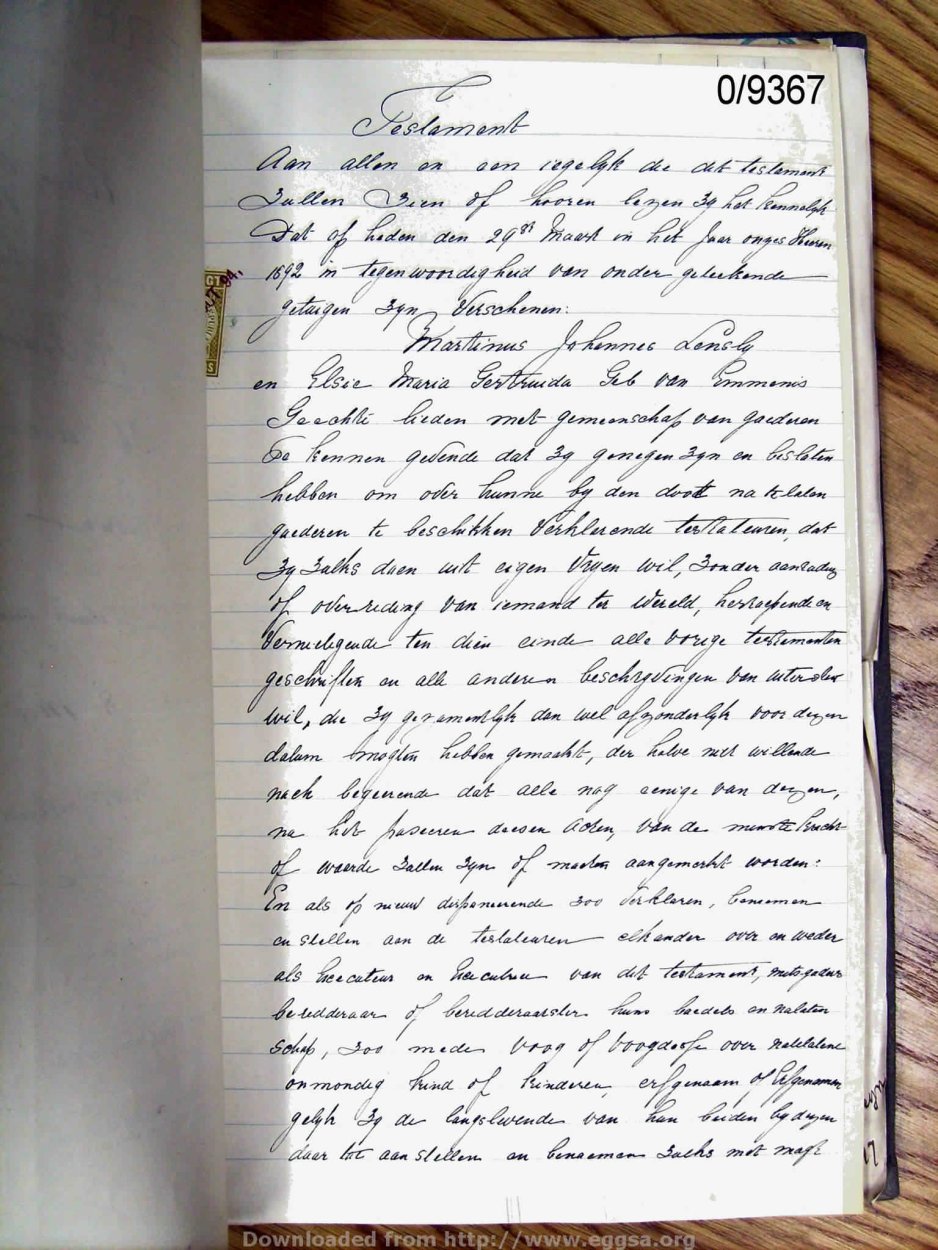 0/9367
Testament
Aan allen en een iegelyk die dit testament
Zullen Zien of hooren lezen zy het kennelyk
Dat op heden den 29st Maart in het Jaar onzes Heeren
1892 in tegenwoordigheid van onder geteekende
getuigen zyn Verschenen:
Martinus Johennes Lensly
en Elsie Maria Gertruida Geb van Emmenis
Geechte lieden met gemeenschap van goederen
Te kennen gevende dat zy genegen zyn en besloten
hebben om over hunne by den dood na te laten
goederen te beschikken Verklarende testateuren, dat
zy zulks doen uit eigen Vryen wil, zonder aanrading
of overreding van iemand ter Wereld, herroepende en
Vernietigende ten dien einde alle vorige testamenten
geschriften en alle anderen beschryvingen van uitersten
wil, die zy gezamentlyk dan wel afzonderlyk voor dezen
datum mogten hebben gemaakt, der halve niet willende
noch begeerende dat alle nog eenige van dezen,
na het passeren deesen Acten, van de minste kracht
of waarde zullen zyn of moeten aangemerkt worden:
En als op nieuw disponeerende zoo verklaren, benoemen
en stellen aan de testateuren elkander over en weder
als Executeur en Executrice van dit testament, mitsgaders
beredderaar of beredderaarster huns boedels en nalaten
schap, zoo mede voog of voogdesse over natelatene
onmondig kind of kinderen, erfgenaam of Erfgenamen
gelyk zy de langslevende van hun beiden by dezen
daar toe aan stellen en benoemen zulks met magt
94.
17
Downloaded from http://www.eggsa.org